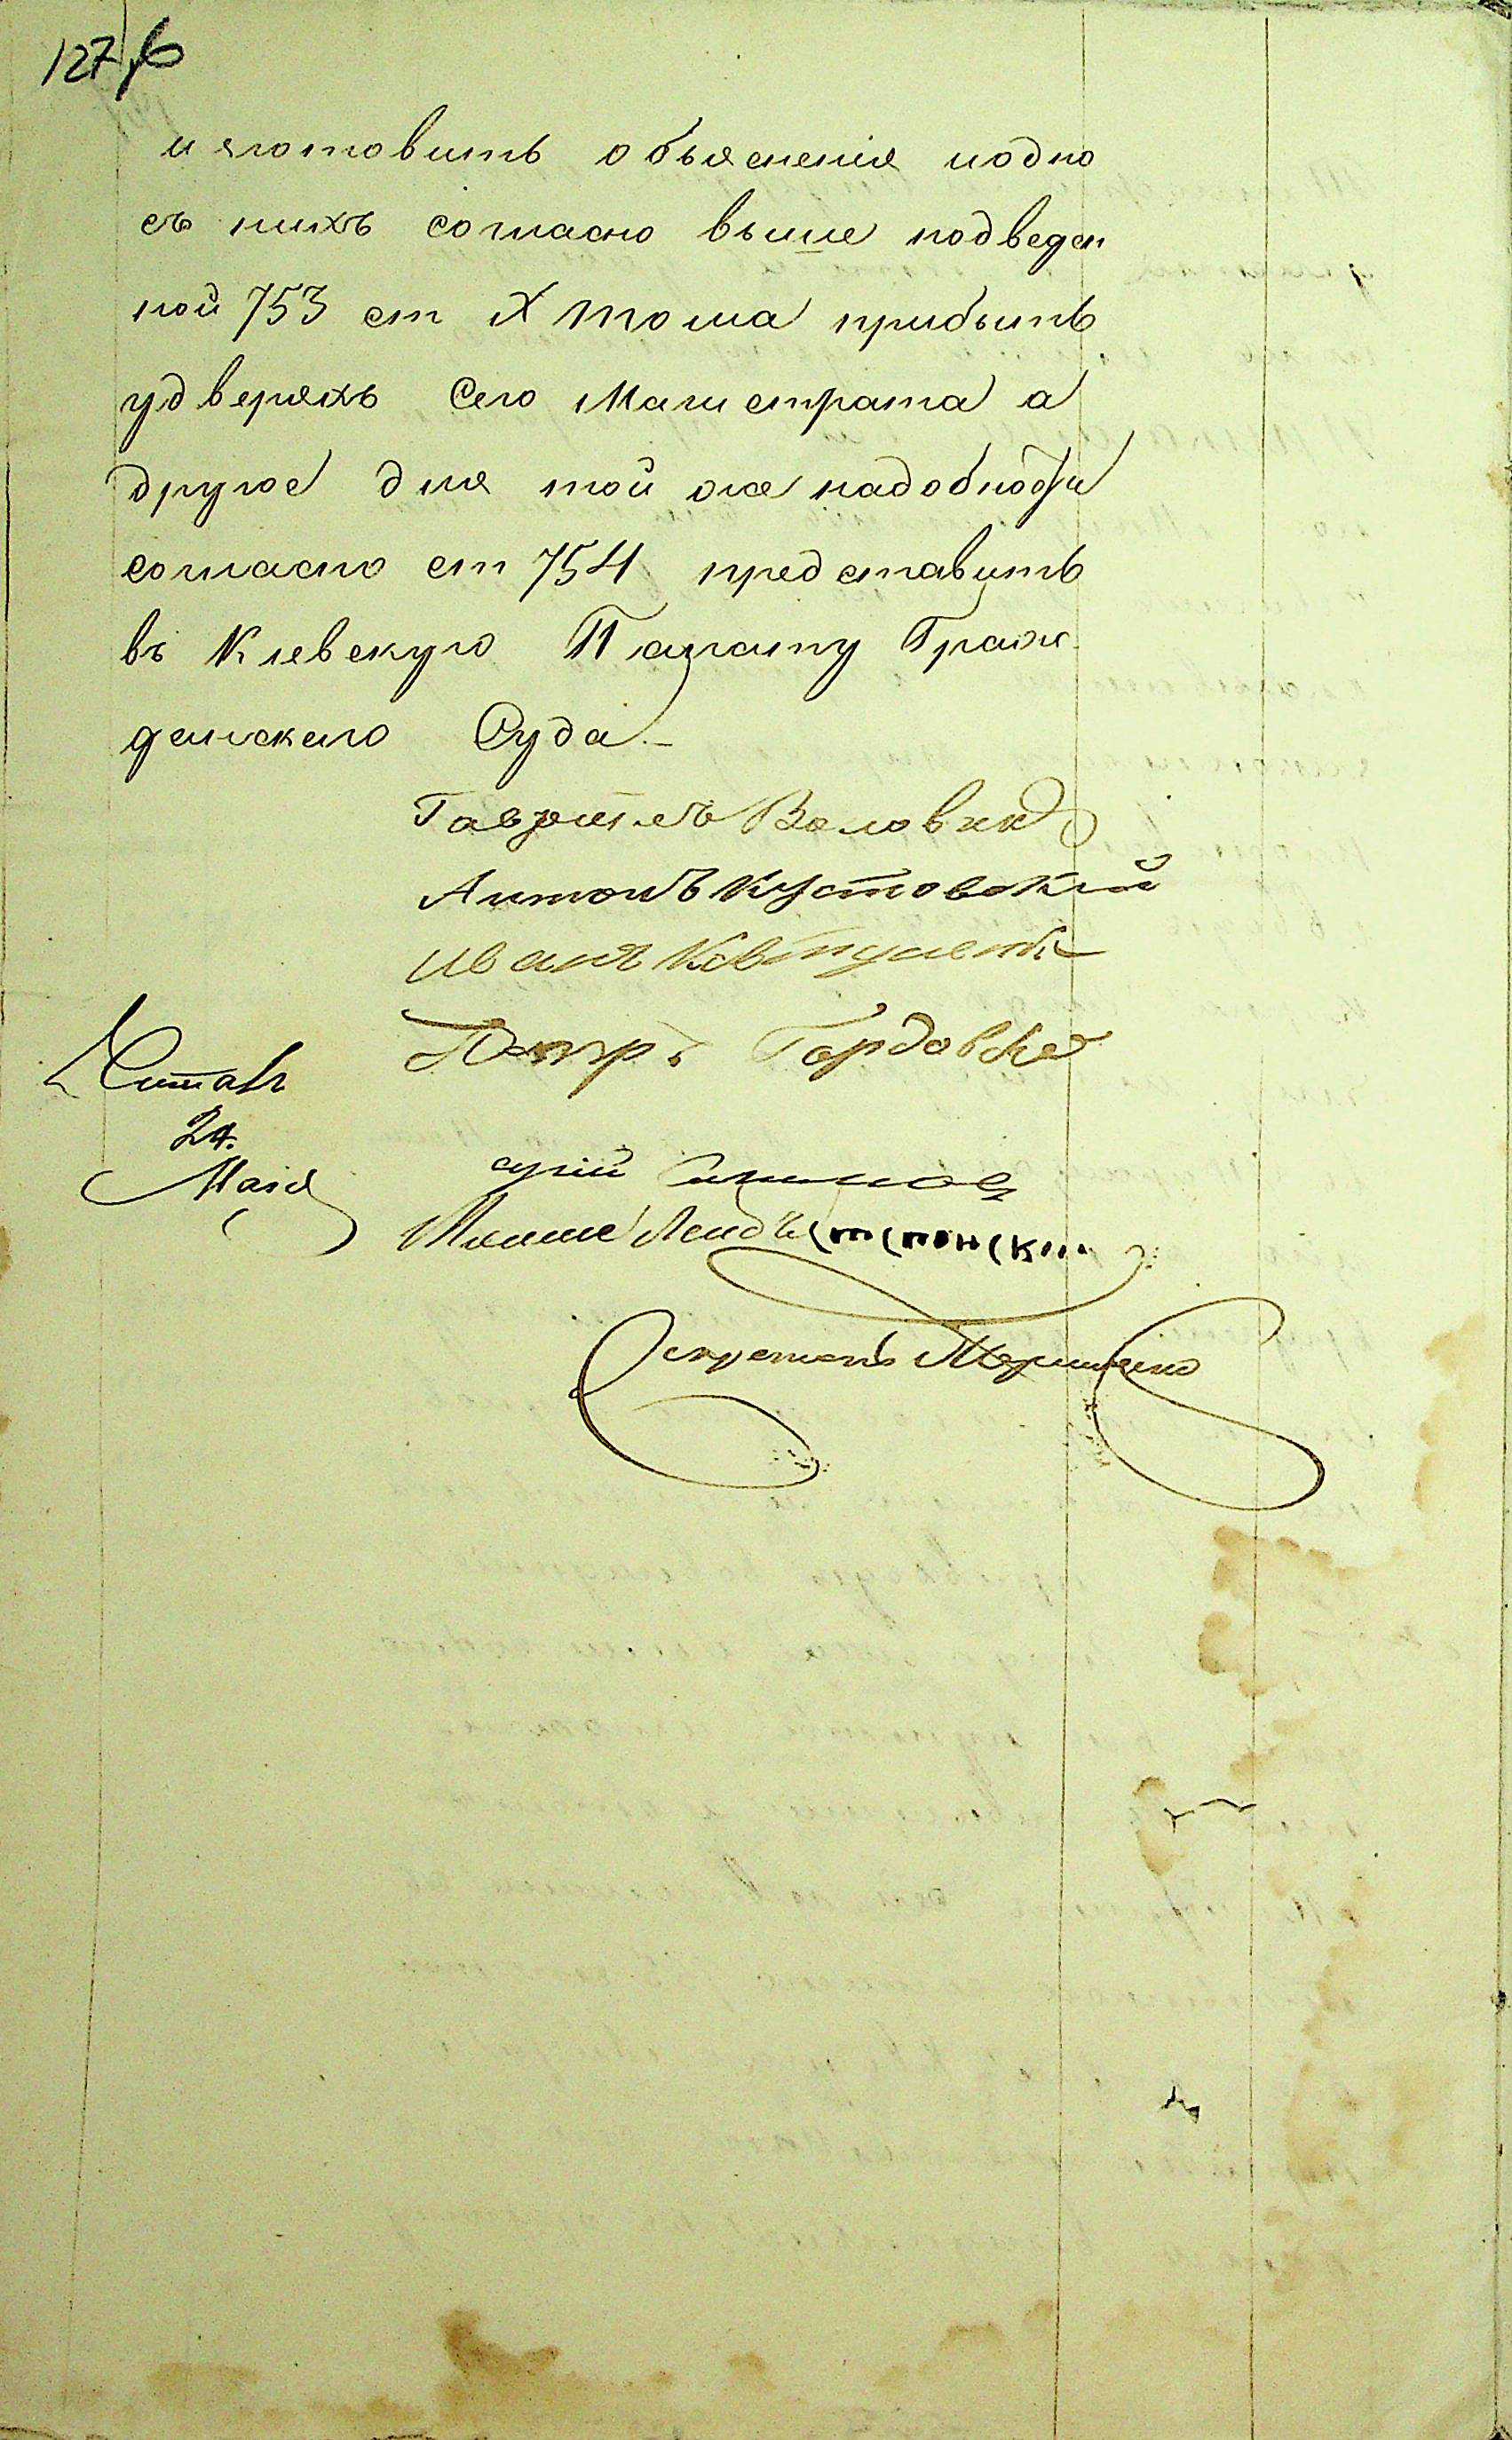 127 б
изготовить объясненія по одно
съ нихъ согласно выше подведен
ной 753 ст X тома прибить
у дверяхъ сего Магистрата а
другое для той же надобности
согласно ст 754 представить
въ Кіевскую Палату Граж
данскаго Суда.-
Гавріилъ Воловик
Антонъ Кустовскій
Иванъ
Петръ
Читалъ
24.
Мая
Мошие
Секретарь